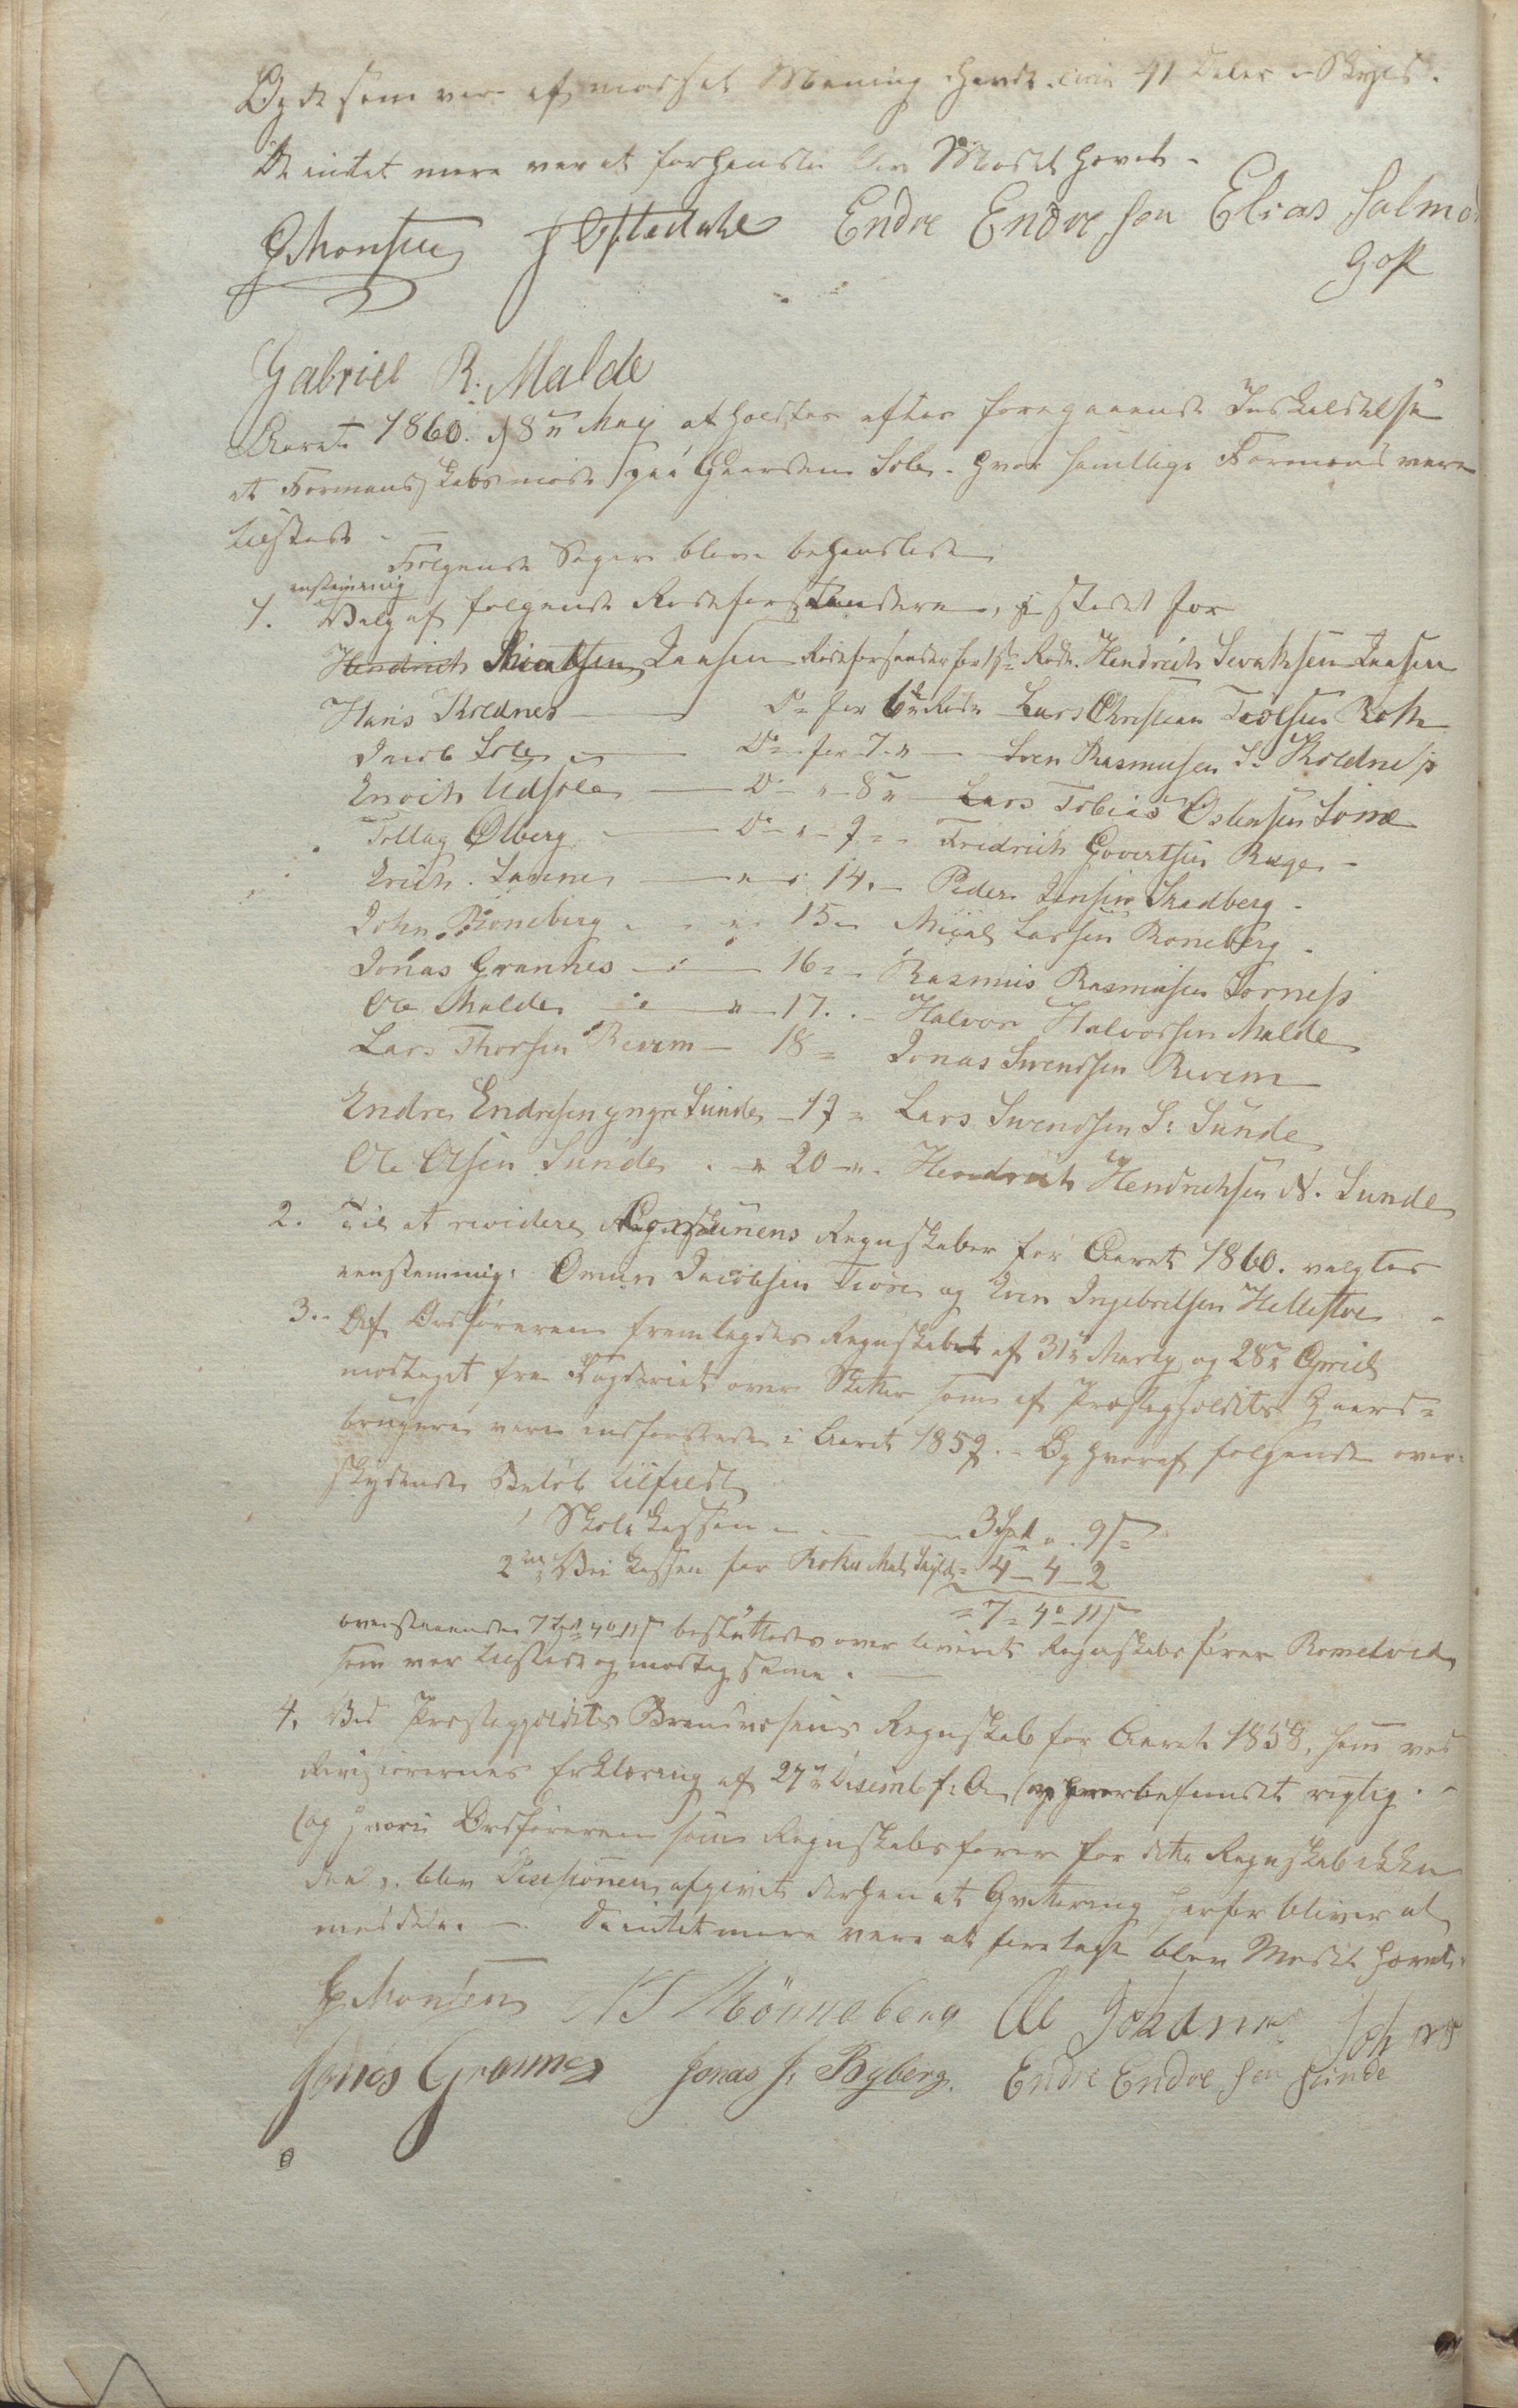 Bygd som var af modsat Mening havde circa 41 Daler i Skyld.
Da intet mere var at forhandle blev Mødet hævet.
G Monsen J Oftedahl Endre Endresen Elias Salmo
Gabriel R. Malde
Aaret 1860. d 8de Maj afholdtes efter foregaaende Indkaldelse
et Formandskabsmøde paa Gaarden Sole. hvor samtlige Formænd vare
tilstede.
Følgende Sager bleve behandlede
enstemmig
1. Valg af følgende Rodeforstandere, i stedet for
Hendrich Sivertsen Jaasen Rodeforstander for 1ste Rode. Hendrich Sivertsen Jaasen
Hans Skolnes Do for 6te Rode Lars Christian Tiølsen Roth
Jacob Sole Do for 7de Sven Rasmusen S. Skoldnes
Enoch Udsole Do " 8de Lars Tobias Østensen Somme
Tollag Ølberg Do " 9 Fredrich Govertsen Ræge
Erich Sømme " 14. Peder Jensen Stadberg
John Røneberg " 15 Micael Larsen Roneberg
Jonas Grannes 16 Rasmus Rasmusen Sornes
Ole Malde 17. Halvor Halvorsen Malde
Lars Thorsen Revem 18 Jonas Svendsen Revem
Endre Endresen yngre Sunde 19 Lars Svendsen S: Sunde
Ole Olsen Sunde " 20 Hendrich Hendrichsen N. Sunde
2. Til at revidere Communens Regnskaber for Aaret 1860. valgtes
eenstemmig: Omun Jacobsen Tiore og Sven Ingebretsen Hellestøe
3. Af Ordføreren fremlagdes Regnskabet af 31te Marty og 28de April
modtaget fra Fogderiet over Skatter som af Præstegjeldets Gaard-
brugere vare indfordrede i Aaret 1859. Og hvoraf følgende over-
skydende Beløb tilfaldt
1 Skolekassen 3 Spd " 9 s
2de Vei Kassen for 4 - 4 - 2
7 - 4 - 11 s
ovenstaaende 7 Spd 4 11 s besluttedes overleveret Regnskabsfører Rometvedt
som var tilstede og modtog samme.
4. Ved Præstegjeldets Brændvesens Regnskab for Aaret 1858, som ved
Revisorernes Erklæring af 27de Decemb f: A befundet rigtig.
(og hvori Ordføreren som Regnskabsfører for dette Regnskab ikke
deel) blev Decisionen afgivet derhen at Qvitering herfor bliver at
meddele. Da intet mere vare at foretage blev Mødet hævet.
G Monsen Rønneberg Ole Johannes
Jonas Grannes Jonas J: Byberg. Endre Endresen Sunde